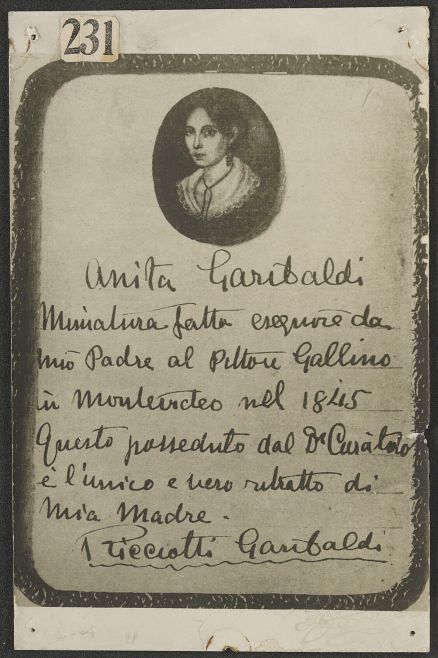 231
Anita Garibaldi
Miniatura fatta eseguire da
mio Padre al Pittore Gallino
in Montevideo nel 1845
Questo posseduto dal Dr Curàtolo
è l'unico e vero ritratto di
Mia Madre.
Ricciotti Garibaldi